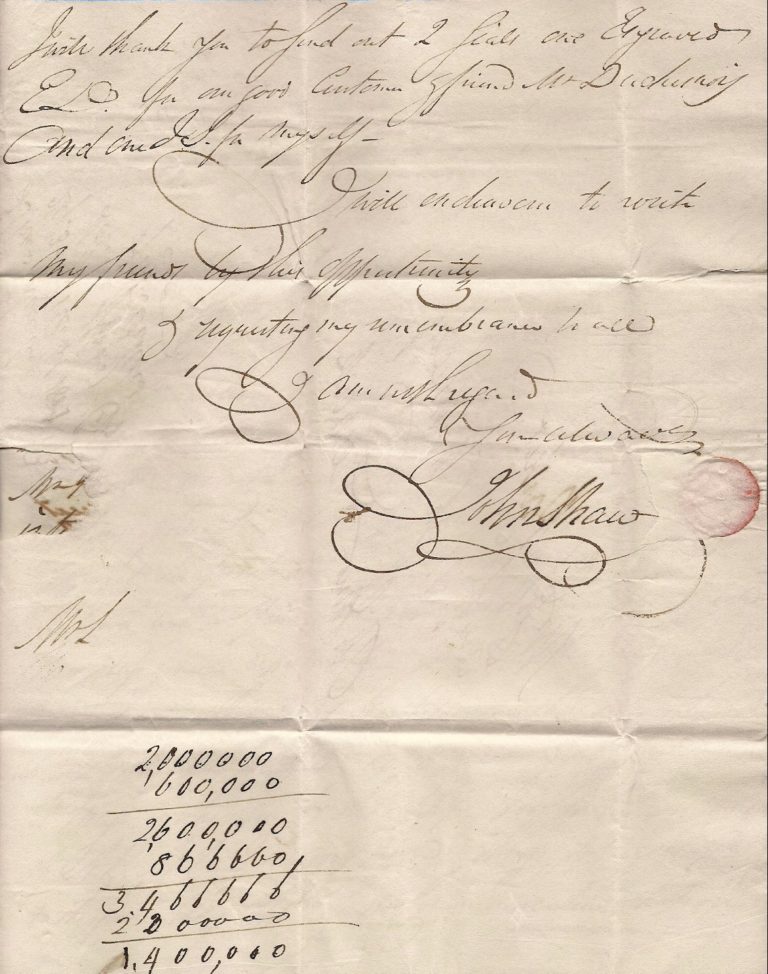 I will thank you to send out 2 Seals one Engraved
E D. for our good Customer & friend Mr Duchesnois
and one J S. for myself –
I will endeavour to write
my friends by this opportunity
& requesting my remembrance to all
I am with regard
Yours always
John Shaw
Mr
Mr L
2,000000
600,000
2,600,000
866660
3,466666
2200000
1,400,000